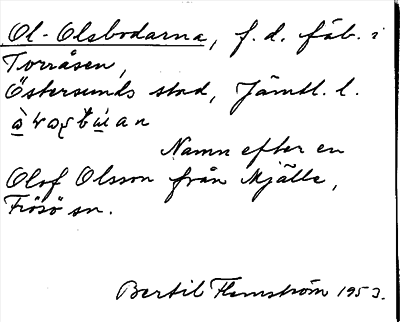 Ol-Olsbodarna, f. d. fäb. i
Torråsen,
Östersunds stad, Jämtl. l.
Namn efter en
Olof Olsson från Mjälle,
Frösö sn.
Bertil Flemström 1953.